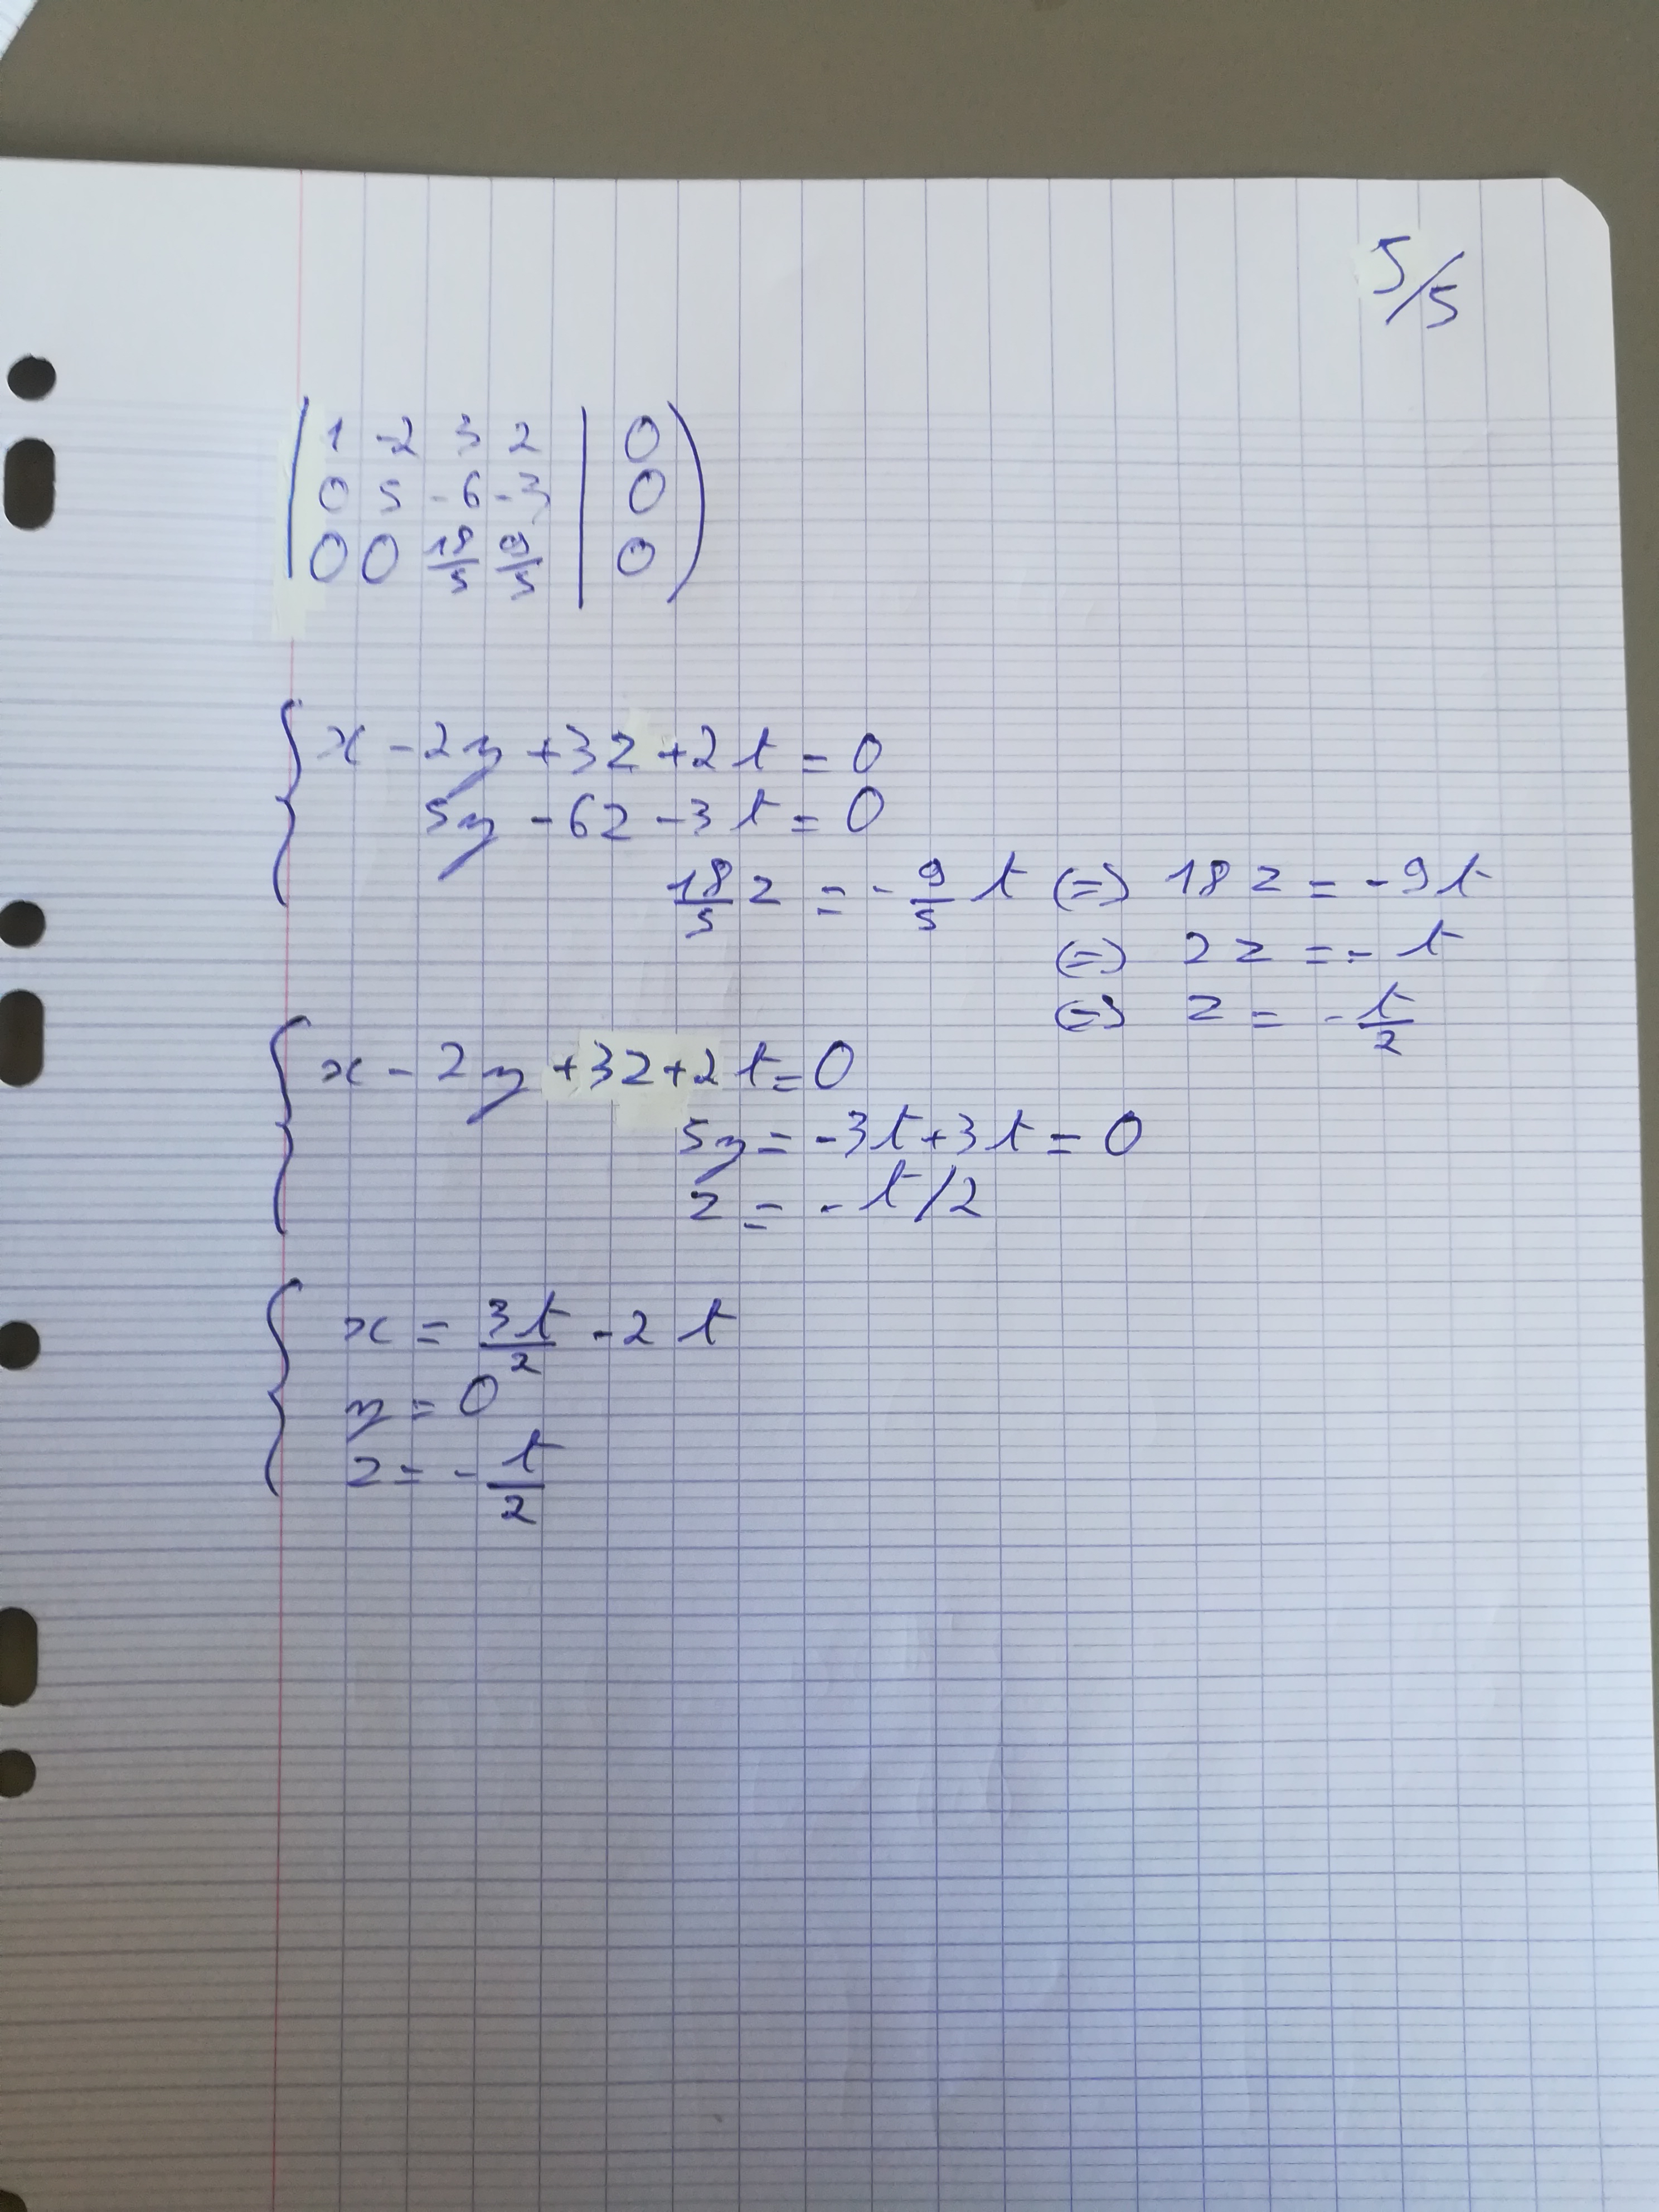 5/5
( 1 -2 3 2 | 0 )
0 5 -6 -3 | 0
0 0 18/5 9/5 | 0
{ x - 2y + 3z + 2t = 0
5y - 6z - 3t = 0
18/5 z = - 9/5 t (=) 18z = -9t
(=) 2z = - t
(=) z = - t/2
{ x - 2y + 3z + 2t = 0
5y = -3t + 3t = 0
z = - t/2
{ x = 3t/2 - 2t
y = 0
z = - t/2